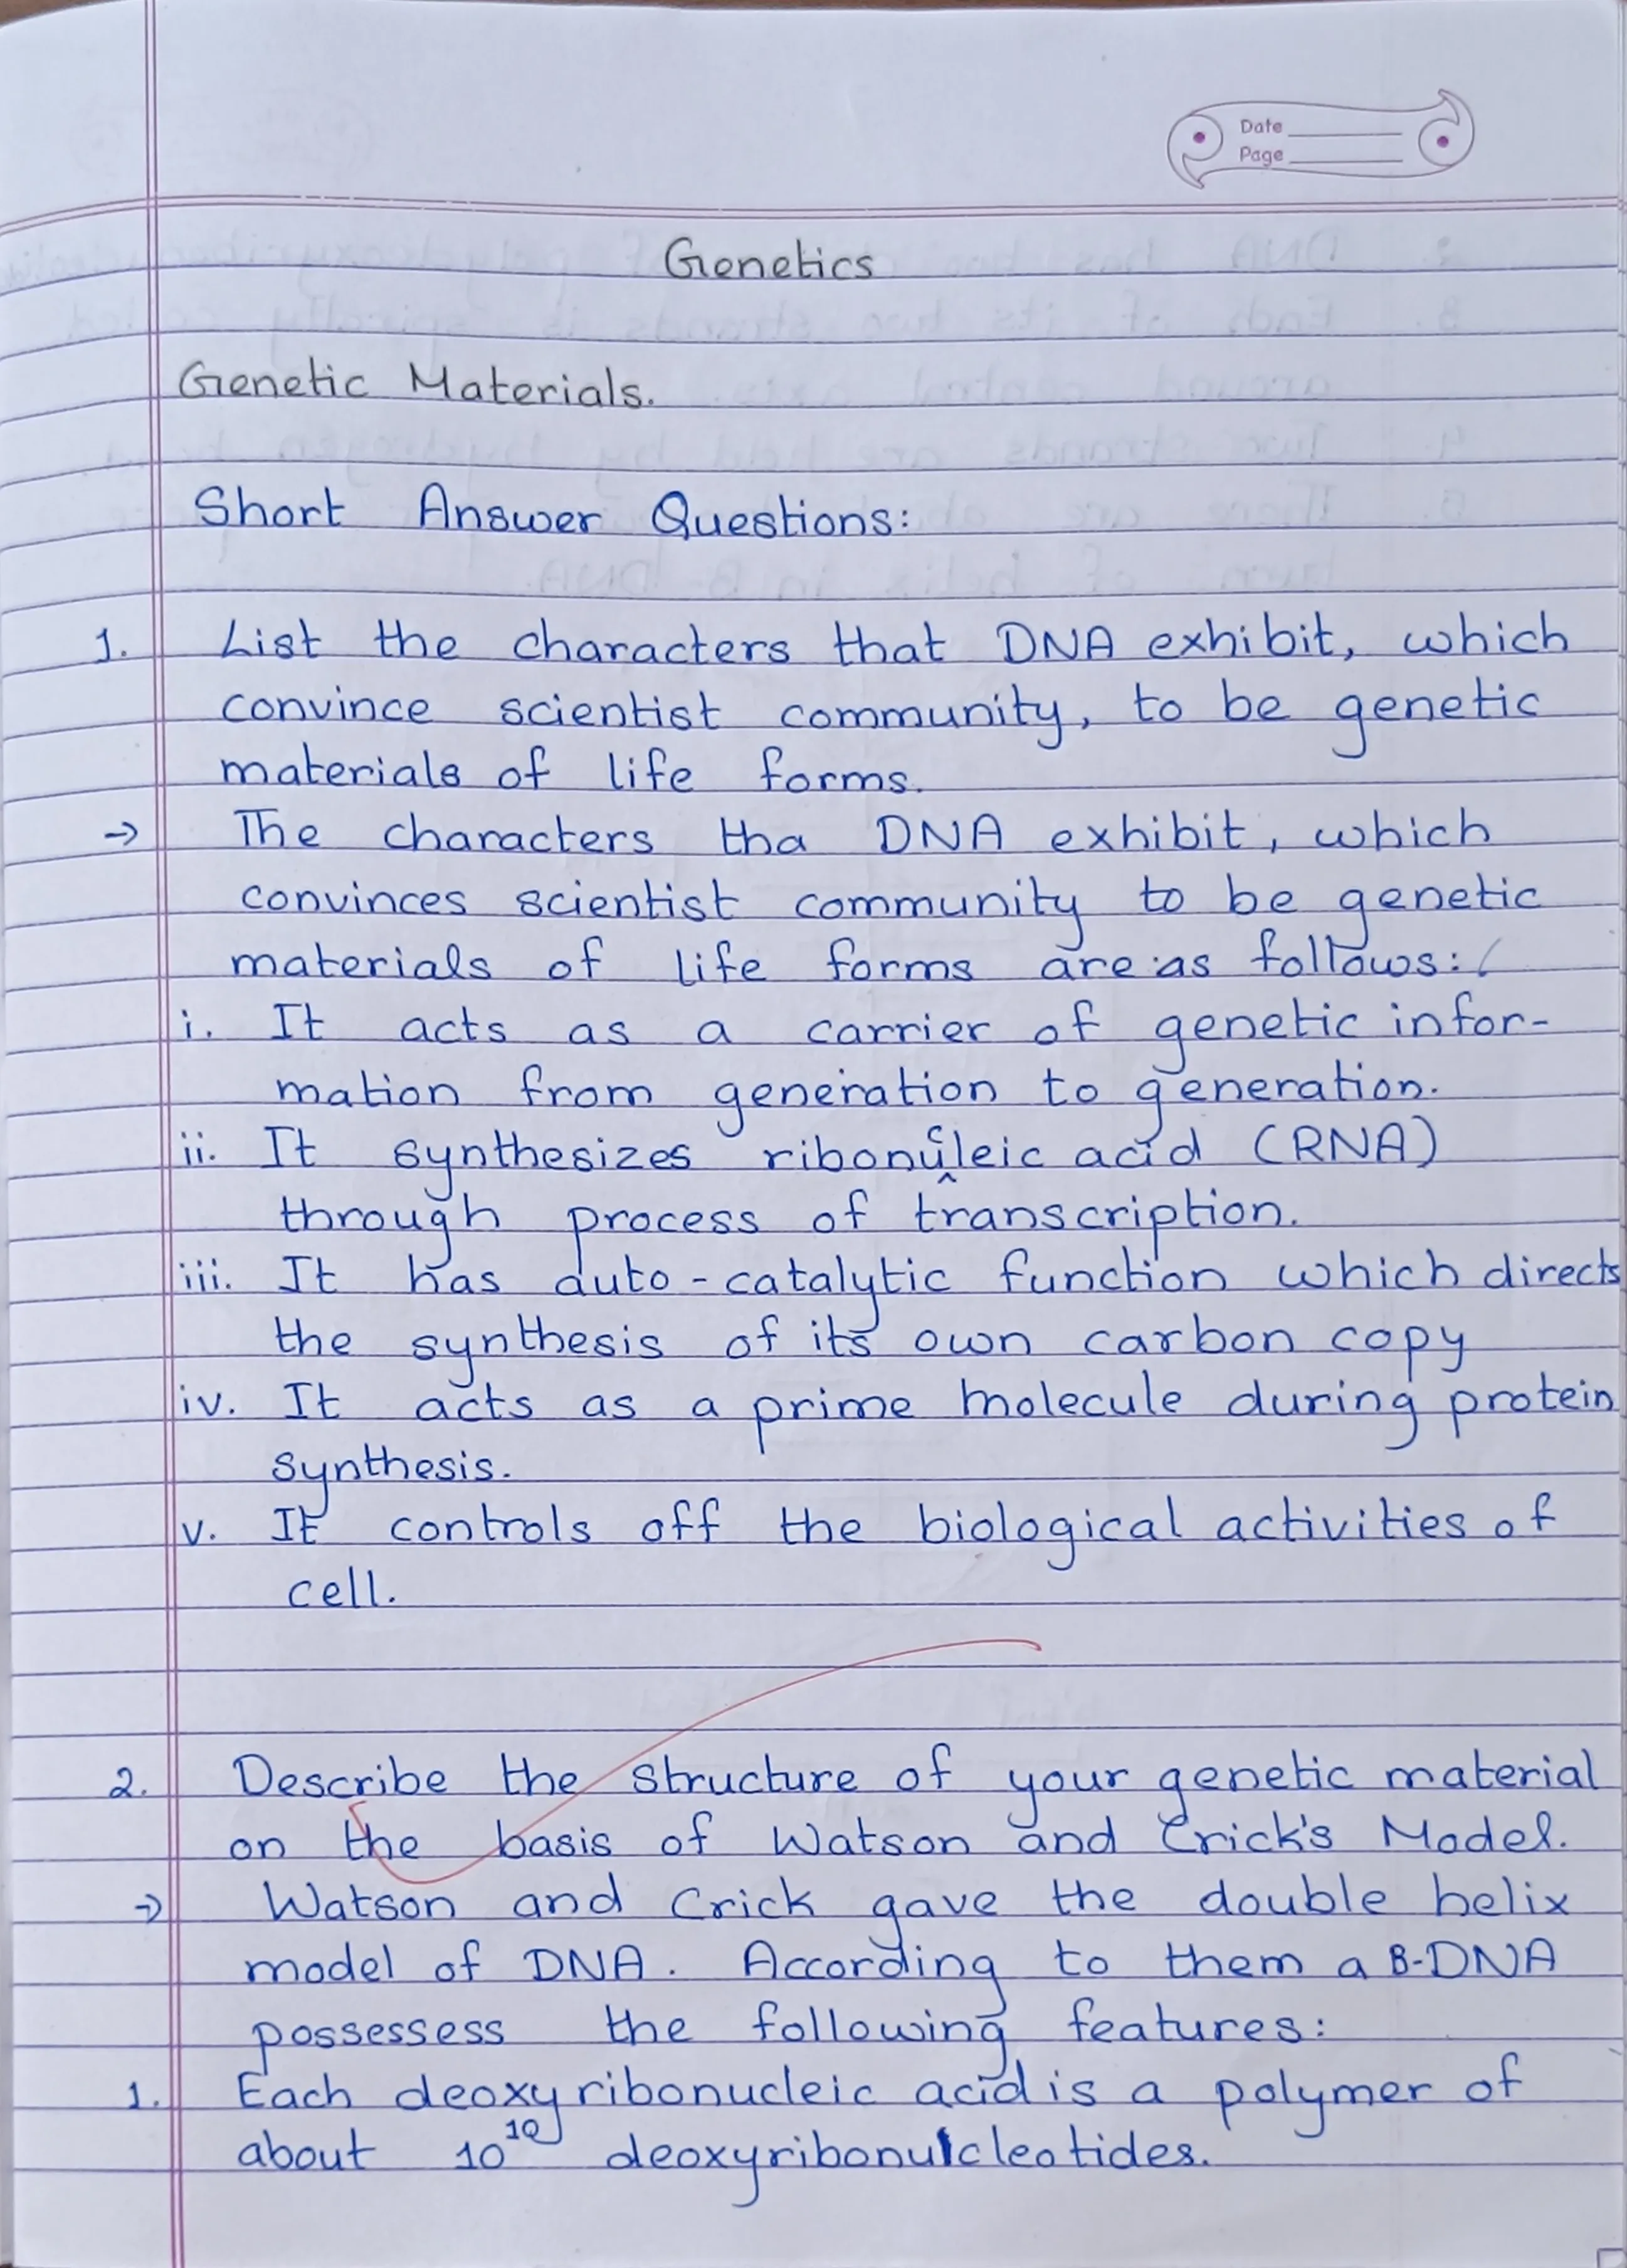 Date
Page
Genetics
Genetic Materials.
Short Answer Questions:
1. List the characters that DNA exhibit, which
convince scientist community, to be genetic
materials of life forms.
→ The characters tha DNA exhibit, which
convinces scientist community to be genetic
materials of life forms are as follows:
i. It acts as a carrier of genetic infor-
mation from generation to generation.
ii. It synthesizes ribonucleic acid (RNA)
through process of transcription.
iii. It has auto-catalytic function which directs
the synthesis of its own carbon copy
iv. It acts as a prime molecule during protein
synthesis.
v. It controls off the biological activities of
cell.
2. Describe the structure of your genetic material
on the basis of Watson and Crick's Model.
→ Watson and Crick gave the double helix
model of DNA. According to them a B-DNA
possessess the following features:
1. Each deoxyribonucleic acid is a polymer of
about 10¹⁰ deoxyribonucleotides.